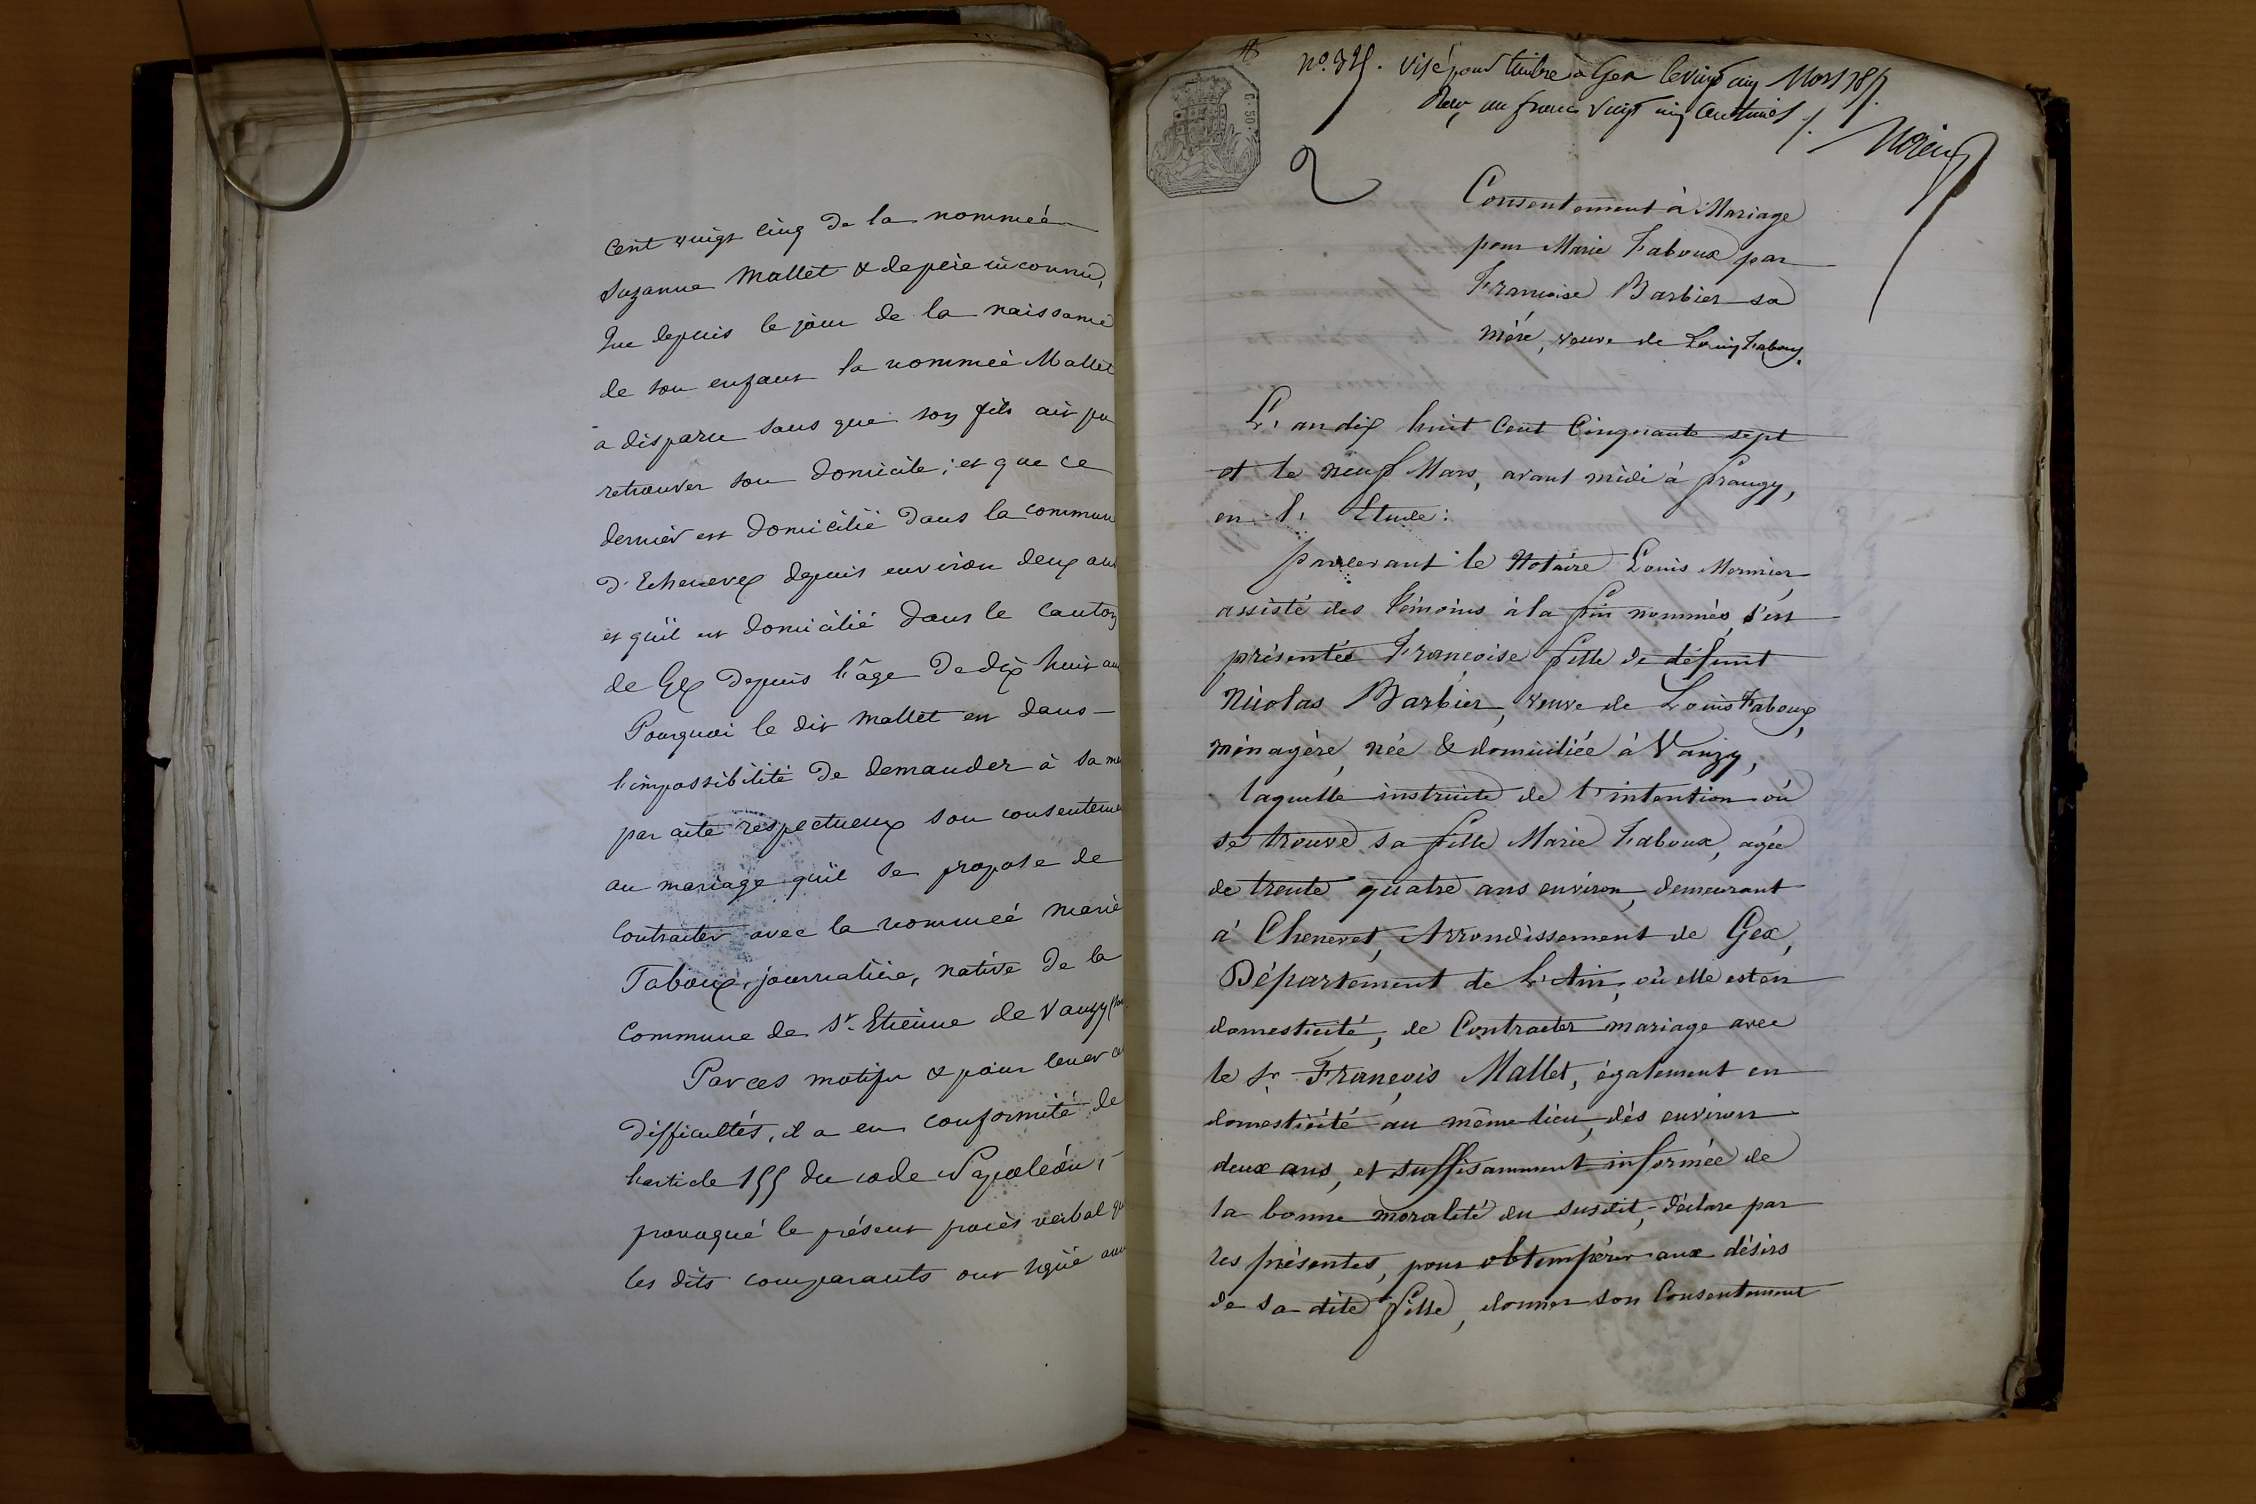 cent vingt cinq de la nommée
Suzanne Mallet & de père inconnu,
Que depuis le jour de la naissance
de son enfant la nommée Mallet
a disparu sans que son fils ait pu
retrouver son domicile ; et que ce
dernier est domicilié dans la commune
d'Echenevex depuis environ deux ans
et qu'il est domicilié dans le canton
de Gex depuis l'âge de dix huit ans
Pourquoi le dit Mallet est dans
l'impossibilité de demander à sa mè
par acte respectueux son consenteme
au mariage qu'il se propose de
contracter avec la nommée Marie
Taboux, journalière, native de la
commune de St. Etienne de Vanzy
Par ces motifs & pour lever ces
difficultés, il a en conformité de
l'article 155 du code Napoléon,
provoqué le présent procès verbal qu
les dits comparants ont signé avec
No. 325. Visé pour timbre à Gex le vingt cinq Mars 1857.
Reçu un franc vingt cinq centimes
2
Consentement à Mariage
pour Marie Faboux par
Françoise Barbier sa
mère, veuve de Louis Faboux.
L'an dix huit Cent Cinquante sept
et le neuf Mars, avant midi à frangy,
en l'Etude :
pardevant le Notaire Louis Mermier,
assisté des témoins à la fin nommés, s'est
présentée Françoise fille de défunt
Nicolas Barbier, veuve de Louis Faboux,
ménagère, née & domiciliée à Vanzy,
laquelle instruite de l'intention où
se trouve sa fille Marie Faboux, agée
de trente quatre ans environ, demeurant
à Chenevet, Arrondissement de Gex,
Département de L'Ain, où elle est en
domesticité, de Contracter mariage avec
le Sr. François Mallet, également en
domesticité au même lieu, dès environ
deux ans, et suffisamment informée de
la bonne moralité du susdit, déclare par
les présentes, pour obtempérer aux désirs
de sa dite fille, donner son Consentement